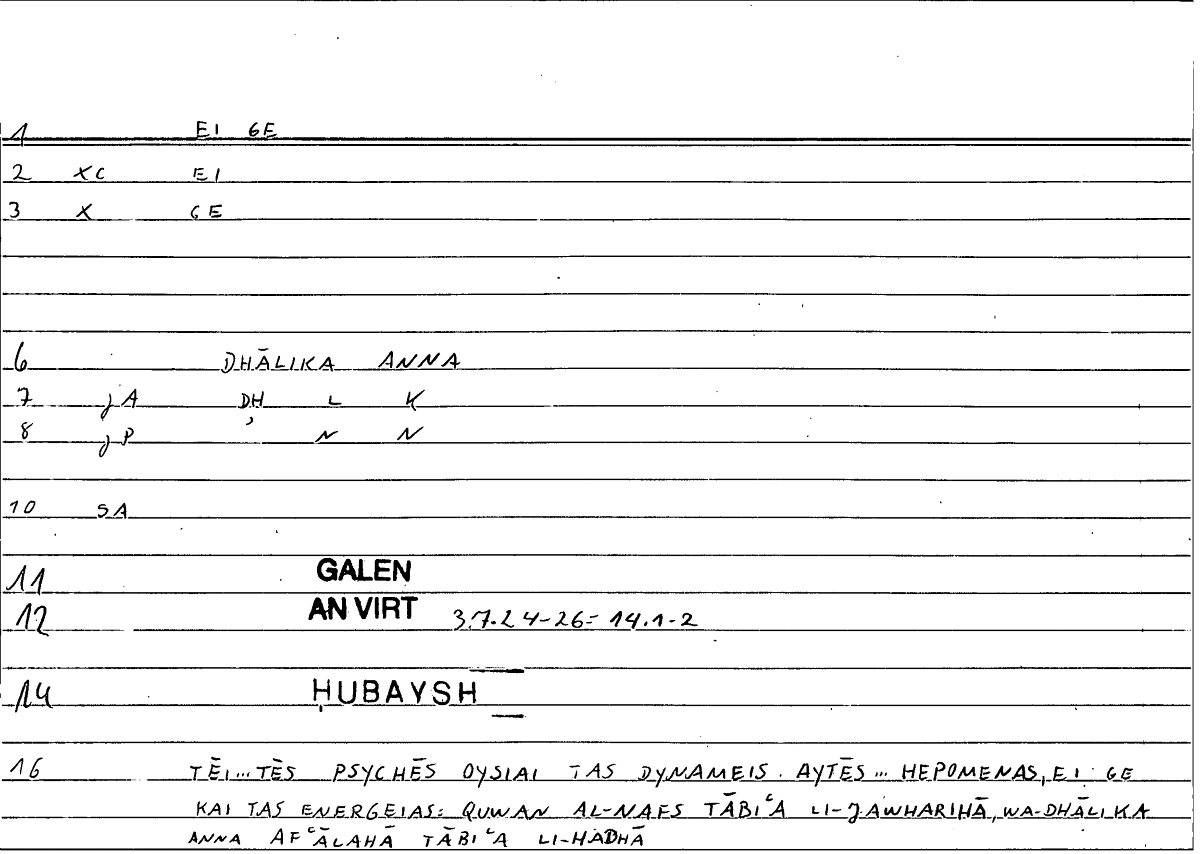 1 EI GE
2 XC EI
3 X GE
6 DHĀLIKA ANNA
7 jA DH L K
8 jP ʾ N N
10 SA
11 GALEN
12 AN VIRT 37.24-26= 14.1-2
14 ḤUBAYSH
16 TĒI... TĒS PSYCHĒS OYSIAI TAS DYNAMEIS. AYTĒS ... HEPOMENAS, EI GE
KAI TAS ENERGEIAS: QUWAN AL-NAFS TĀBIʿA LI-JAWHARIHĀ, WA-DHĀLIKA
ANNA AFʿĀLAHĀ TĀBIʿA LI-HĀDHĀ